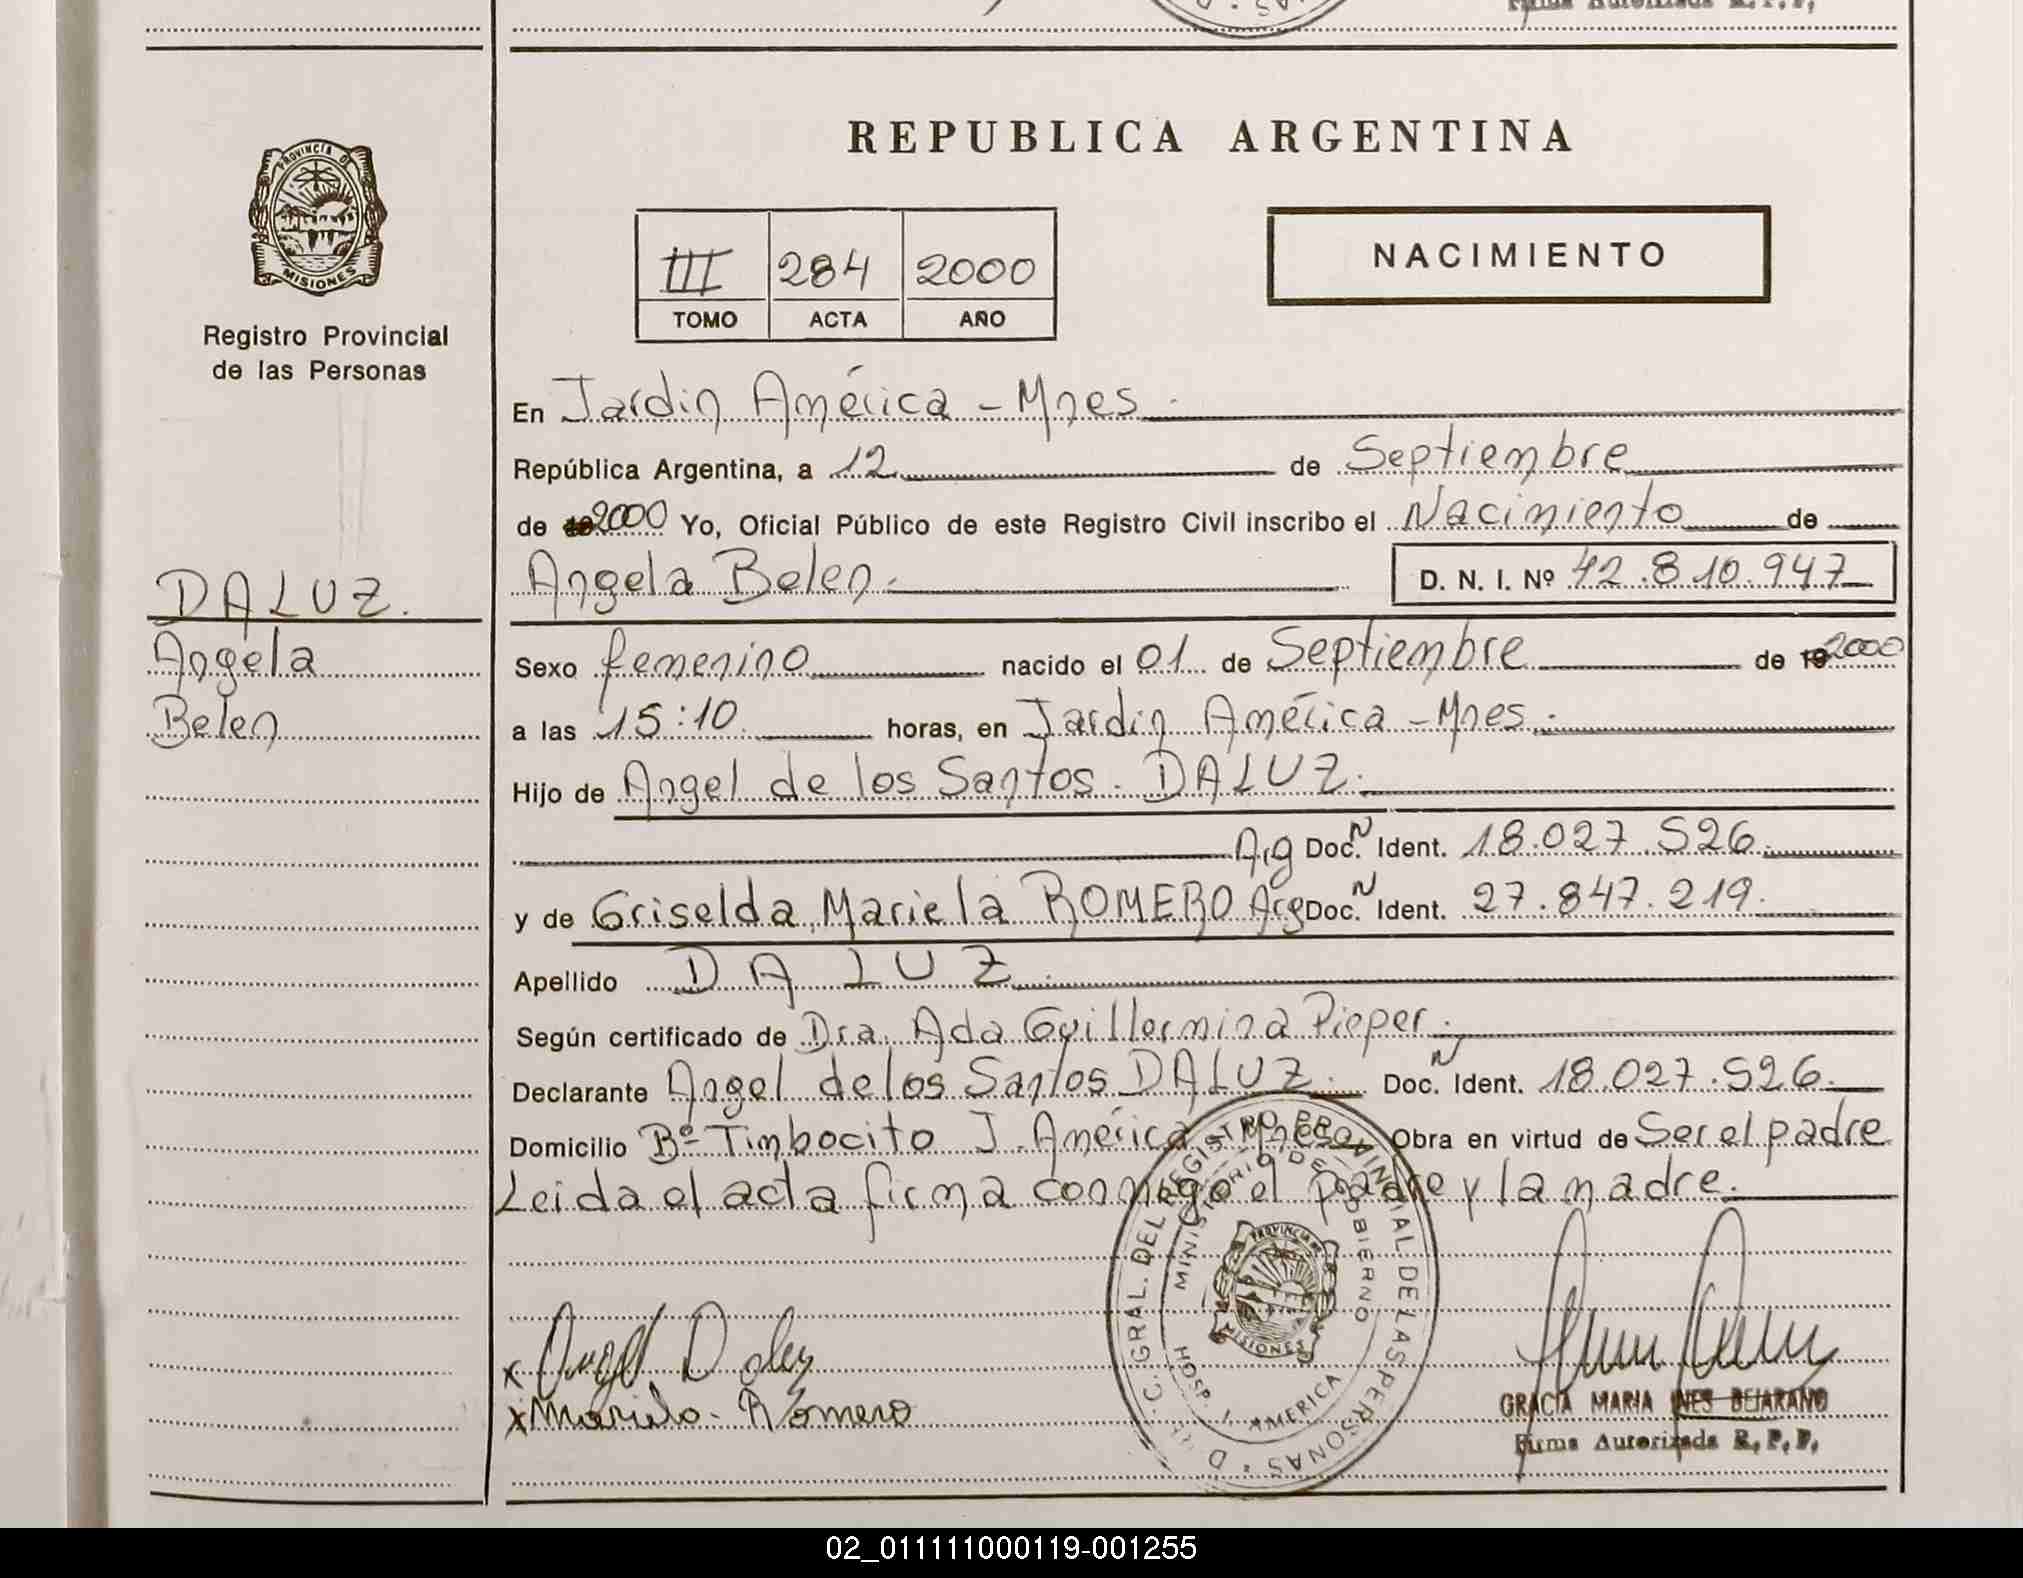 Firma Autorizada R.P.P.
REPUBLICA ARGENTINA
PROVINCIA DE
MISIONES
III 284 2000
NACIMIENTO
TOMO ACTA AÑO
Registro Provincial
de las Personas
En Jardin América - Mnes.
República Argentina, a 12 de Septiembre
de 19 2000 Yo, Oficial Público de este Registro Civil inscribo el Nacimiento de
Angela Belen. D. N. I. Nº 42.810.947
DA LUZ.
Angela
Belen
Sexo femenino nacido el 01 de Septiembre de 19 2000
a las 15:10 horas, en Jardin América - Mnes.
Hijo de Angel de los Santos. DA LUZ.
Arg Doc. N Ident. 18.027.526
y de Griselda Mariela ROMERO Arg Doc. N Ident. 27.847.219.
Apellido DA LUZ.
Según certificado de Dra. Ada Guillermina Pieper.
Declarante Angel de los Santos DA LUZ. Doc. N Ident. 18.027.526.
Domicilio Bº Timbocito J. América Mnes Obra en virtud de Ser el padre
Leida el acta firma conmigo el padre y la madre.
GRAL. DEL REGISTRO PROVINCIAL DE LAS PERSONAS
MINISTERIO DE GOBIERNO
PROVINCIA DE
MISIONES
HOSP. J. AMERICA
x Angel Daluz
x Mariela. Romero
GRACIA MARIA INES BEJARANO
Firma Autorizada R.P.P.
02_011111000119-001255